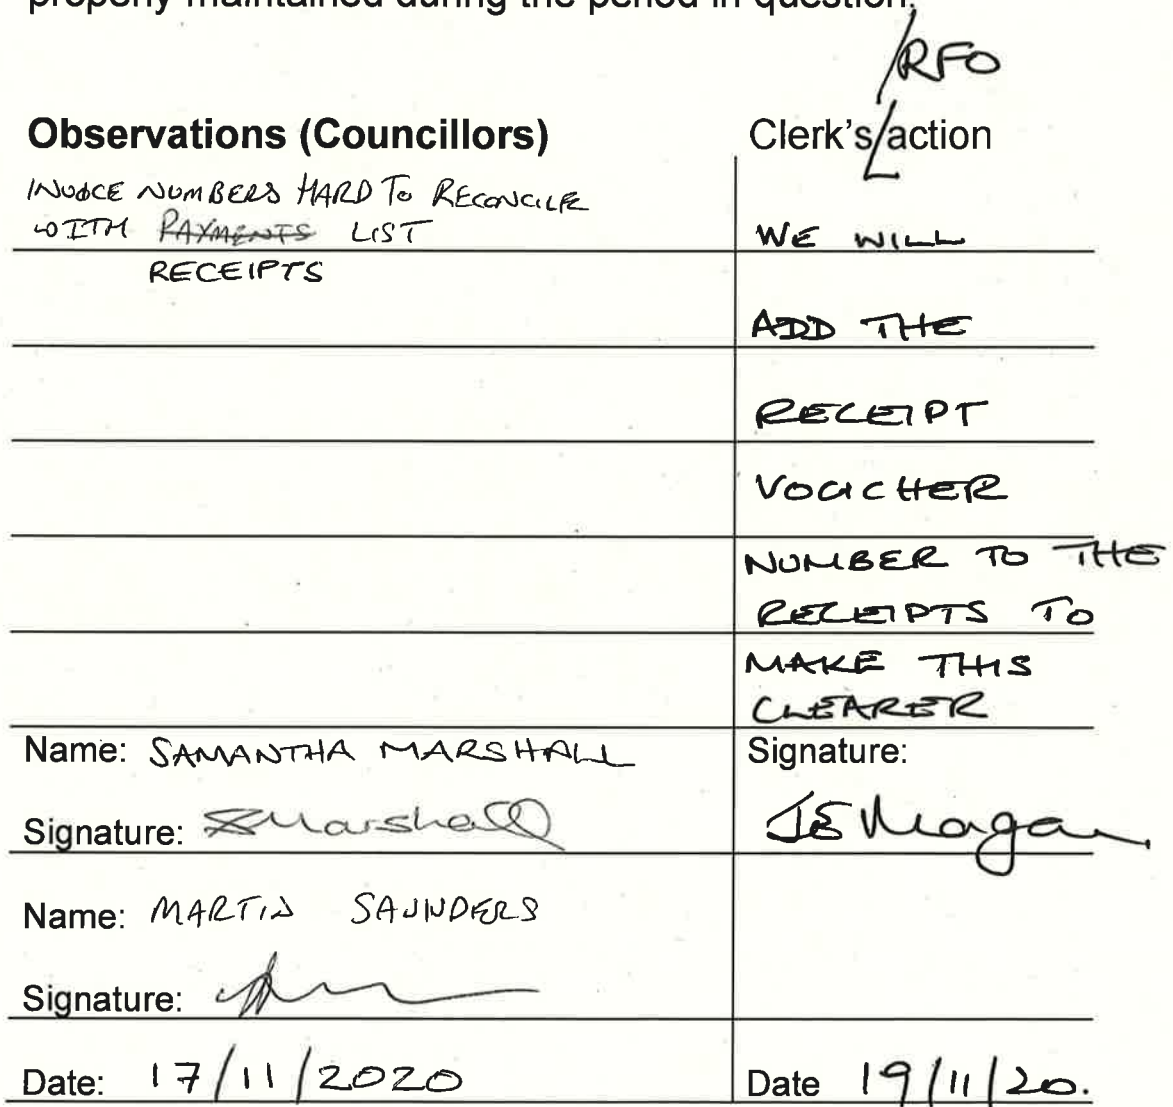 properly maintained during the period in question.
/RFO
Observations (Councillors)
Clerk's/action
INVOICE NUMBERS HARD TO RECONCILE
WITH PAYMENTS LIST
RECEIPTS
WE WILL
ADD THE
RECEIPT
VOUCHER
NUMBER TO THE
RECEIPTS TO
MAKE THIS
CLEARER
Name: SAMANTHA MARSHALL
Signature: SMarshall
Name: MARTIN SAUNDERS
Signature:
Date: 17/11/2020
Signature:
JE Magan
Date 19/11/20.